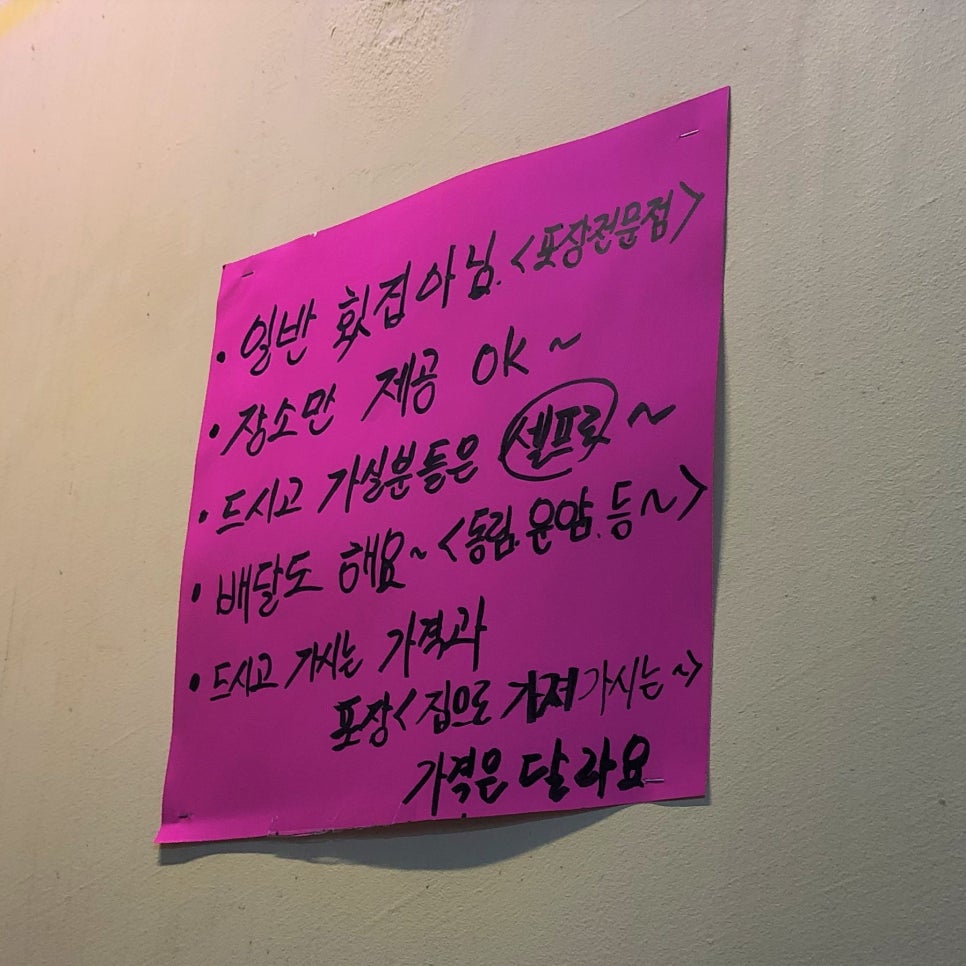 •일반 횟집아님. <포장전문점>
• 장소만 제공 OK~
• 드시고 가실분들은 셀프로~
• 배달도 해요~ <동림. 운암. 등~>
• 드시고 가시는 가격과
포장<집으로 가져가시는~>
가격은 달라요